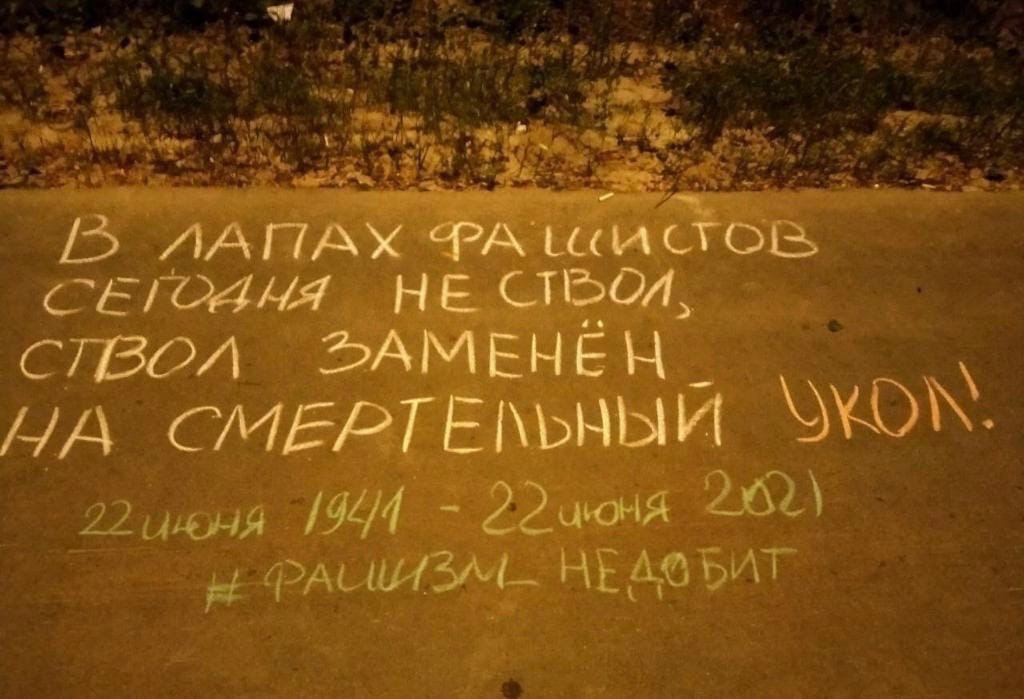 В ЛАПАХ ФАШИСТОВ
СЕГОДНЯ НЕ СТВОЛ,
СТВОЛ ЗАМЕНЁН
НА СМЕРТЕЛЬНЫЙ УКОЛ!
22 июня 1941 - 22 июня 2021
#ФАШИЗМ_НЕДОБИТ